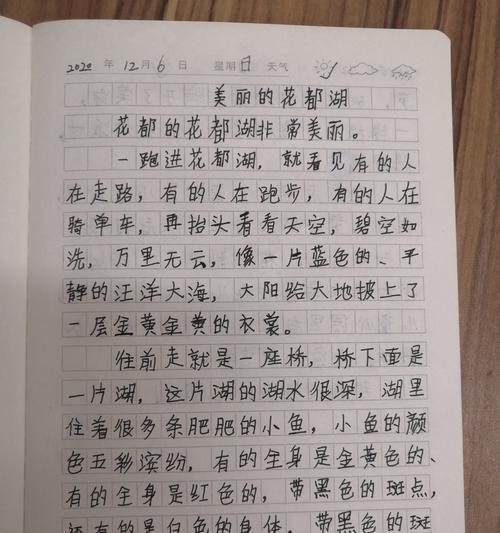 2020 年 12 月 6 日 星期日 天气
美丽的花都湖
花都的花都湖非常美丽。
一跑进花都湖，就看见有的人
在走路，有的人在跑步，有的人在
骑单车，再抬头看看天空，碧空如
洗，万里无云，像一片蓝色的、平
静的汪洋大海，大阳给大地披上了
一层金黄金黄的衣裳。
往前走就是一座桥，桥下面是
一片湖，这片湖的湖水很深，湖里
住着很多条肥肥的小鱼，小鱼的颜
色五彩滨纷，有的全身是金黄色的、
有的全身是红色的，带黑色的斑点，
还有的是白色的身体，带黑色的斑